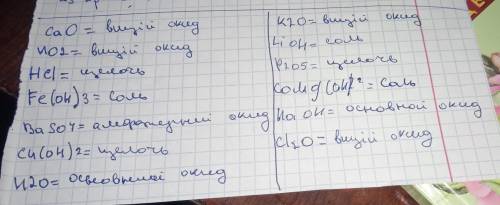 CaO = вищій оксид
NO2 = вищій оксид
HCl = щелочь
Fe(OH)3 = Соль
BaSO4 = амфотерний оксид
Cu(OH)2 = щелочь
H2O = основной оксид
K2O = вищій оксид
LiOH = соль
P2O5 = щелочь
(OH)2 = Соль
NaOH = основной оксид
Cl2O = вищій оксид